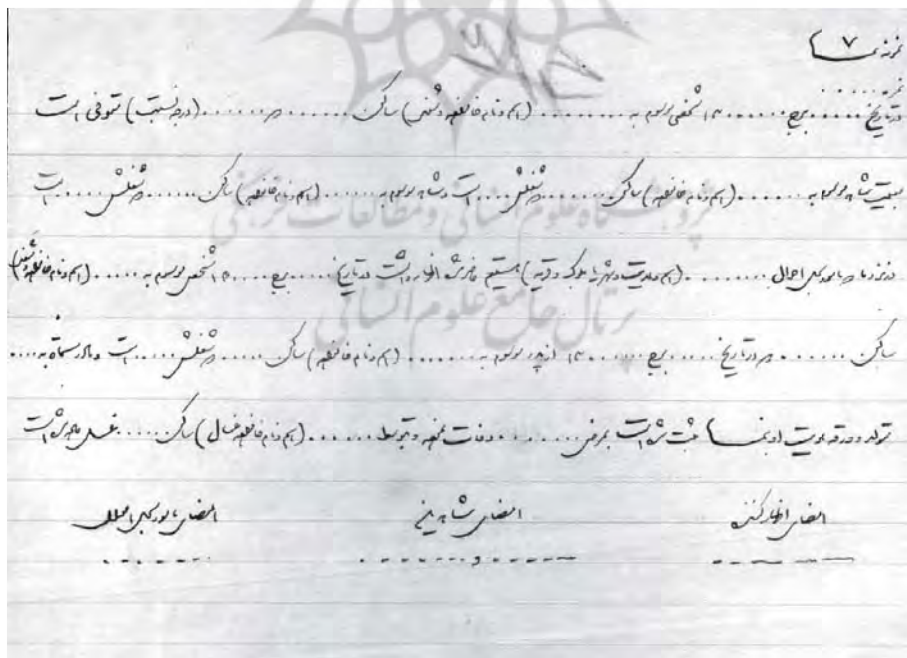 نمونه نمره ۷
نمره .....
در تاریخ ..... برج ...... ۱۳ شخصی موسوم به ......... (اسم و نام خانواده و شغل) ساکن ....... در ....... (درجه نسبت) متوفی است
به معیت شاهد موسوم به ....... (اسم و نام خانواده) ساکن ....... که شغلش .... است و شاهد موسوم به ...... (اسم و نام خانواده) ساکن ...... که شغلش ..... است
در نزد ما مأمور سجل احوال ........ (اسم ولایت و شهر یا بلوک و قریه) حاضر شده اظهار داشت در تاریخ ..... برج .... ۱۳ شخصی موسوم به ..... (اسم و نام خانواده و شغل)
ساکن ....... که در تاریخ ..... برج ...... ۱۳ از پدر موسوم به ........ (اسم و نام خانواده) ساکن ..... که شغلش ..... است و مادر مسماة به ....
تولد و ورقه هویت او بنمره ثبت شده است بمرض ........ وفات نموده و توسط ...... (اسم و نام خانواده غسال) ساکن ..... غسل داده شده است
امضای اظهار کننده امضای شاهدین امضای مأمور سجل احوال
و
پژوهشگاه علوم انسانی و مطالعات فرهنگی
پرتال جامع علوم انسانی